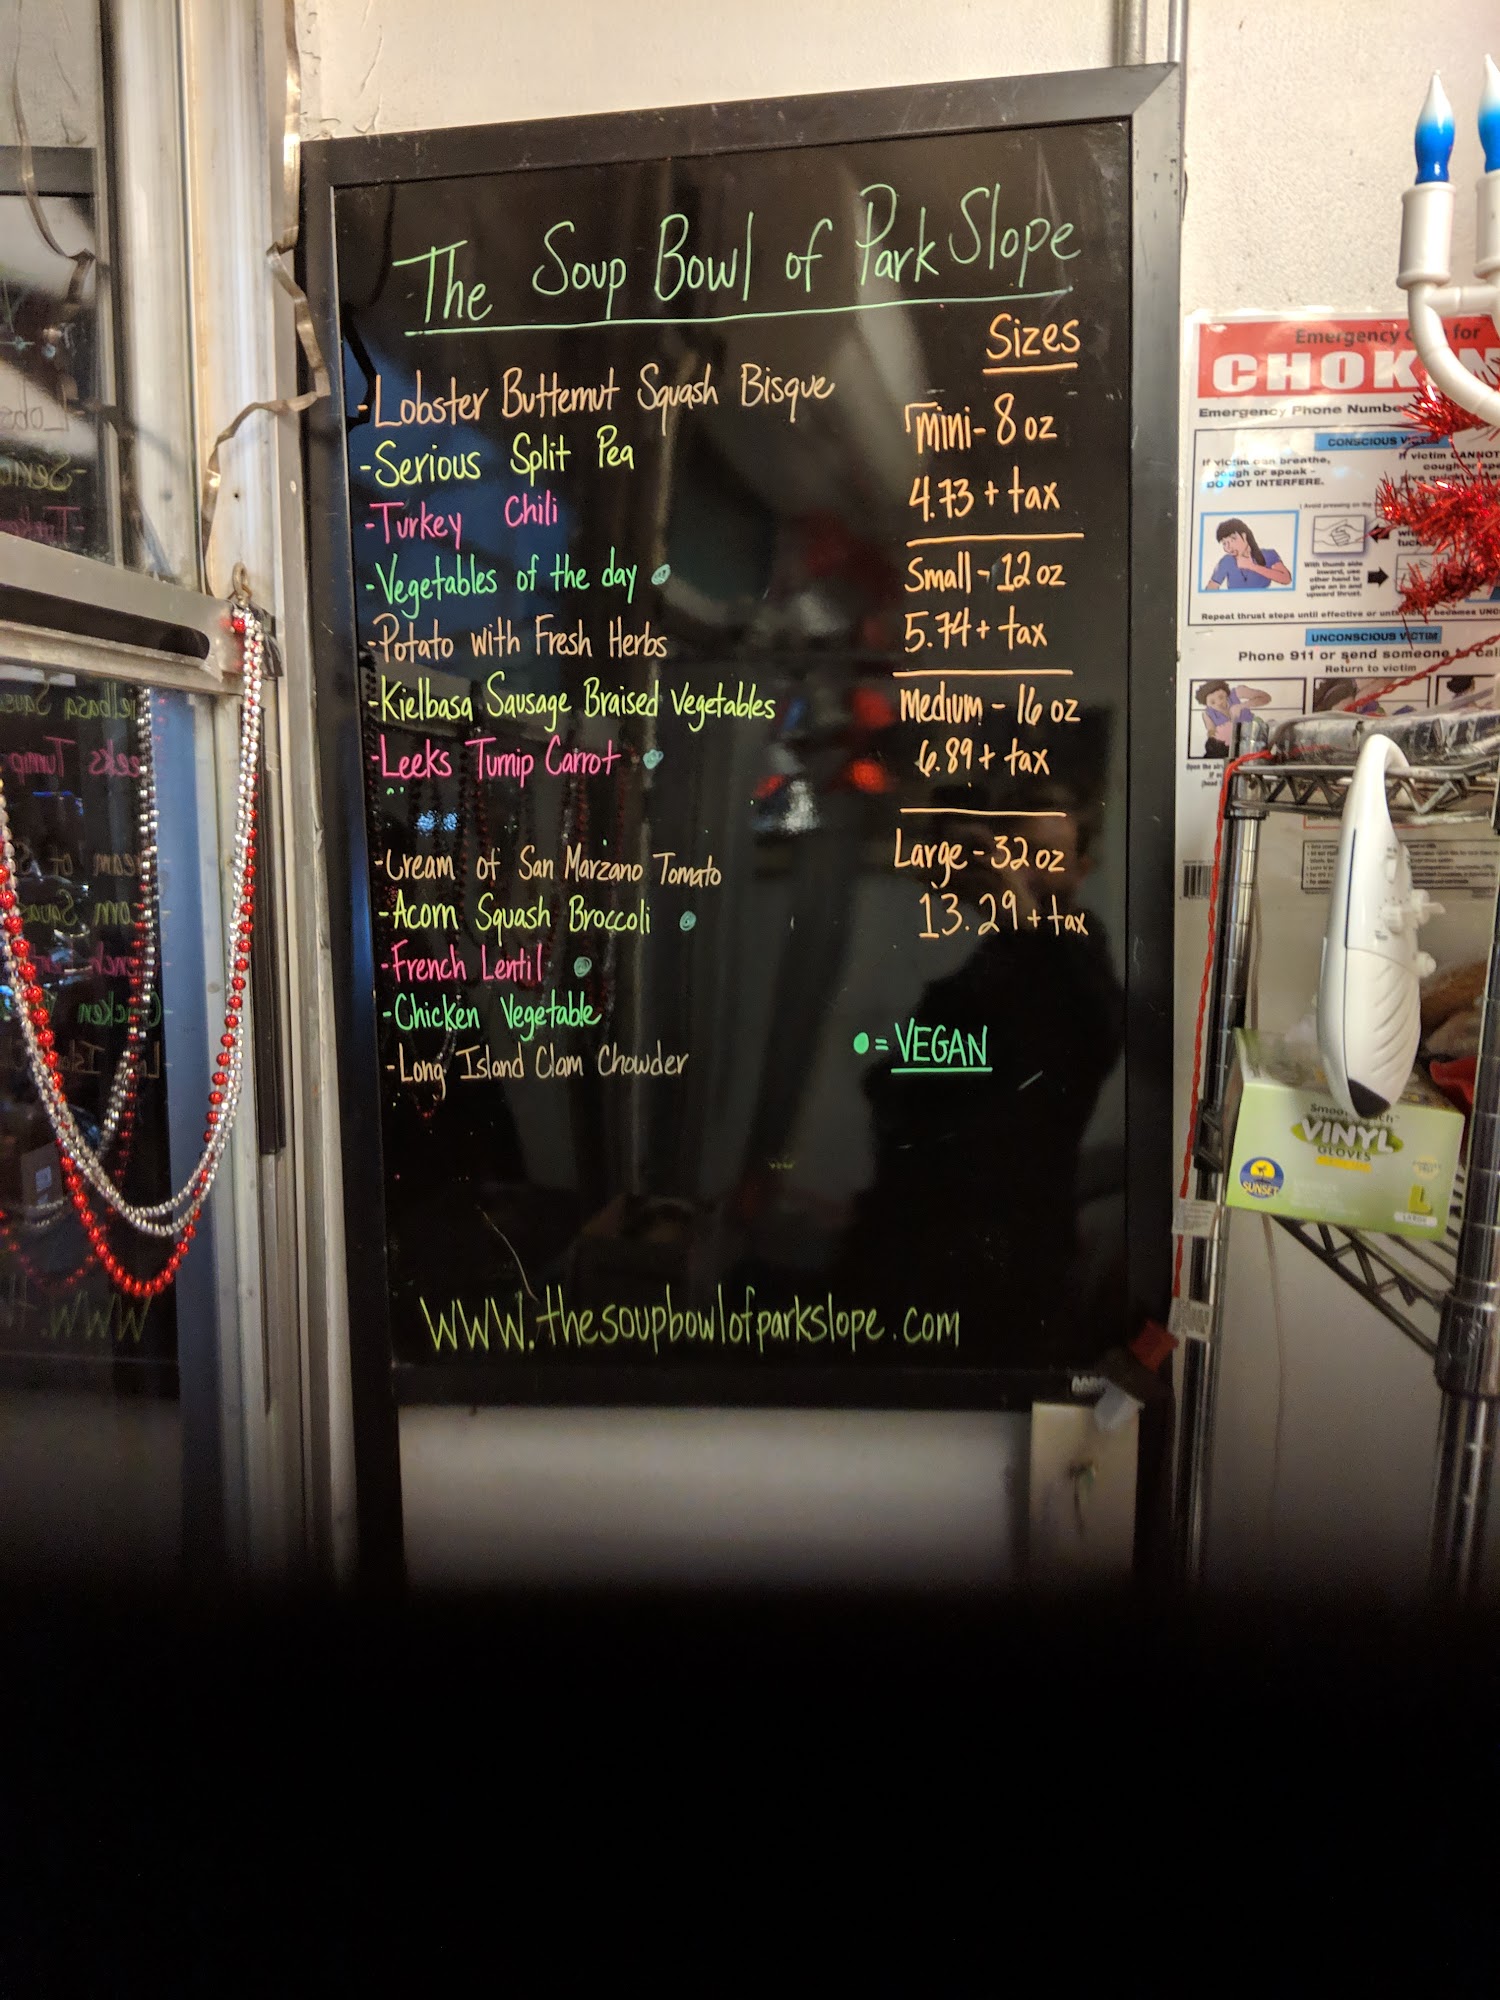 The Soup Bowl of Park Slope
- Lobster Butternut Squash Bisque
- Serious Split Pea
- Turkey Chili
- Vegetables of the day
- Potato with Fresh Herbs
- Kielbasa Sausage Braised Vegetables
- Leeks Turnip Carrot
- Cream of San Marzano Tomato
- Acorn Squash Broccoli
- French Lentil
- Chicken Vegetable
- Long Island Clam Chowder
Sizes
mini - 8 oz
4.73 + tax
Small - 12 oz
5.74 + tax
Medium - 16 oz
6.89 + tax
Large - 32 oz
13.29 + tax
= VEGAN
WWW.thesoupbowlofparkslope.com
Emergency for
CHOK
Emergency Phone Number
CONSCIOUS VICTIM
If victim can breathe,
cough or speak -
DO NOT INTERFERE.
If victim CANNOT
Repeat thrust steps until effective or until victim becomes UNC
UNCONSCIOUS VICTIM
Phone 911 or send someone to call
Return to victim
VINYL
GLOVES
SUNSET
L